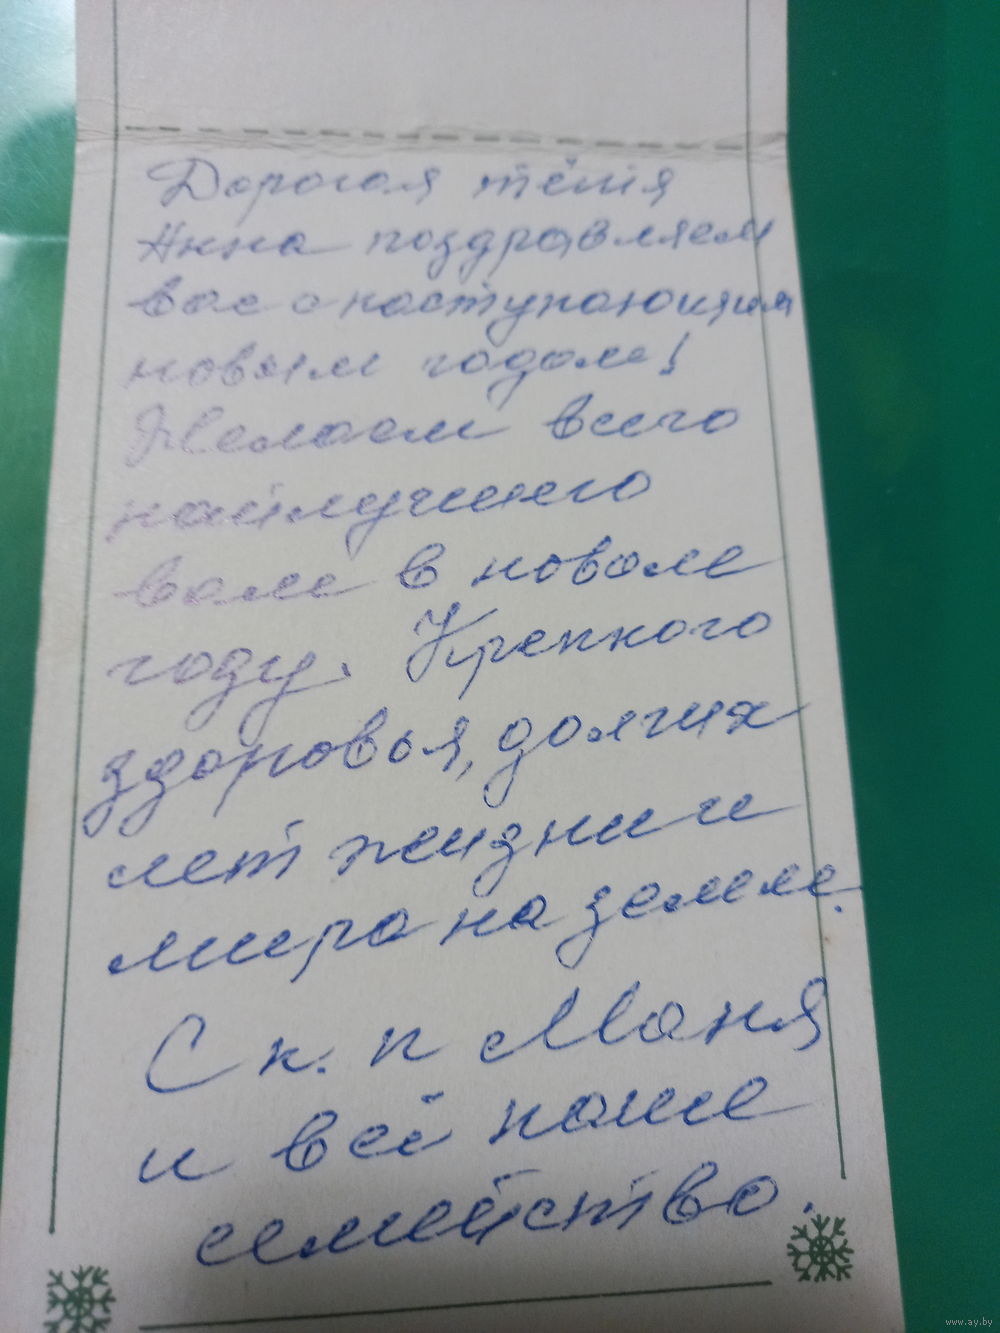 Дорогая тётя
Анна поздравляем
вас с наступающим
новым годом!
Желаем всего
наилучшего
вам в новом
году. Крепкого
здоровья, долгих
лет жизни и
мира на земле.
С н. п Маня
и всё наше
семейство.
www.ay.by